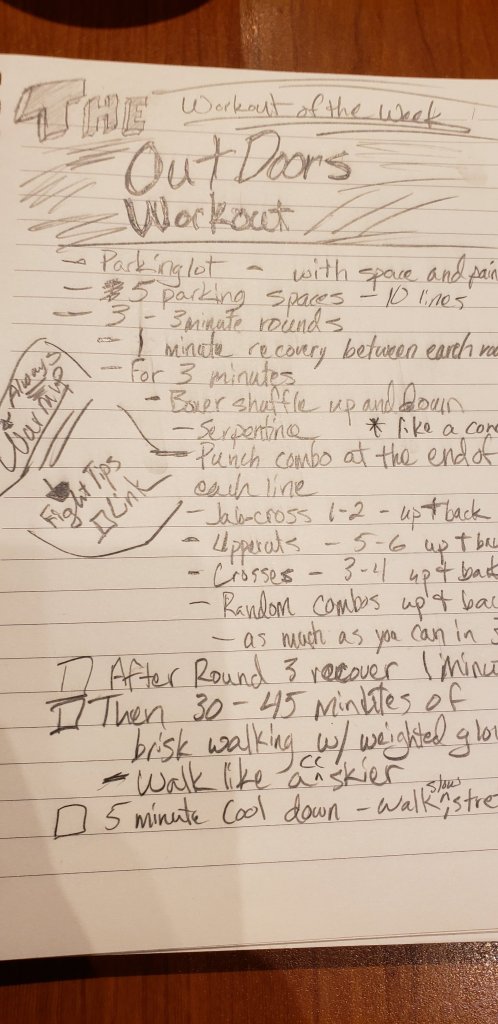 THE
Workout of the Week
Out Doors
Workout
- Parking lot - with space and pain
- 5 parking spaces - 10 lines
- 3 - 3 minute rounds
- 1 minute recovery between each
- For 3 minutes
- Boxer shuffle up and down
- Serpentine * like a
- Punch combo at the end of
each line
- Jab-cross 1-2 - up + back
- Uppercuts - 5-6 up +
- Crosses - 3-4 up + back
- Random combos up + bac
- as much as you can in 3
Always
Warm up
Fight Tips
Link
After Round 3 recover 1 Minu
Then 30-45 minutes of
brisk walking w/ weighted glo
- Walk like a CC skier
5 minute Cool down - walk slow, stre